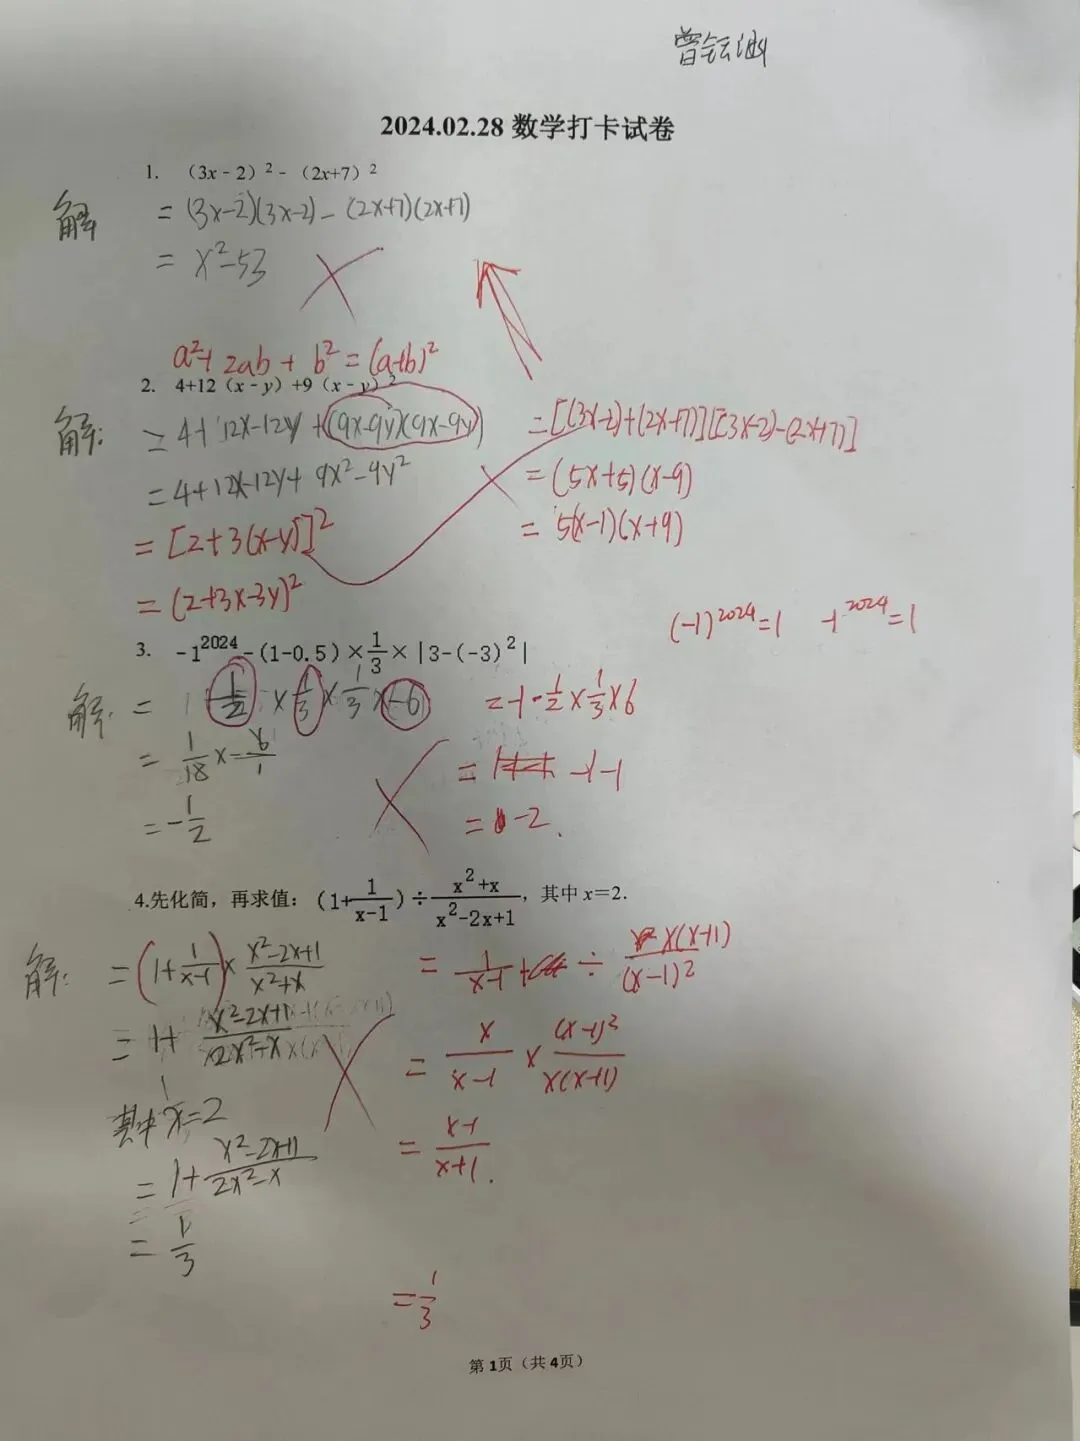 曾
2024.02.28 数学打卡试卷
1. （3x﹣2）²﹣（2x+7）²
解 = (3x-2)(3x-2) - (2x+7)(2x+7)
= x²-53
a²+ 2ab + b² = (a+b)²
2. 4+12（x﹣y）+9（x﹣y）²
解: = 4+12x-12y+(9x-9y)(9x-9y)
= 4+12x-12y+ 9x²-9y²
= [2+3(x-y)]²
= (2+3x-3y)²
= [(3x-2)+(2x+7)][(3x-2)-(2x+7)]
= (5x+5)(x-9)
= 5(x-1)(x+9)
(-1)²⁰²⁴=1 -1²⁰²⁴=1
3. -1²⁰²⁴-(1-0.5)×1/3×|3-(-3)²|
解: = 1 -1/2 ×1/3×1/3×-6
= 1/18 ×-6/1
= -1/2
= -1-1/2×1/3×6
= -1-1
= -2.
4.先化简，再求值：(1+1/(x-1))÷(x²+x)/(x²-2x+1)，其中 x＝2.
解: = (1+1/(x-1))×(x²-2x+1)/(x²+x)
= 1+ (x²-2x+1)/(2x²-x)
其中x=2
= 1+(x²-2x+1)/(2x²-x)
= 1/3
= 1/(x-1) + ÷ x(x+1)/(x-1)²
= x/(x-1) × (x-1)²/x(x+1)
= (x-1)/(x+1).
= 1/3
第 1页（共 4页）